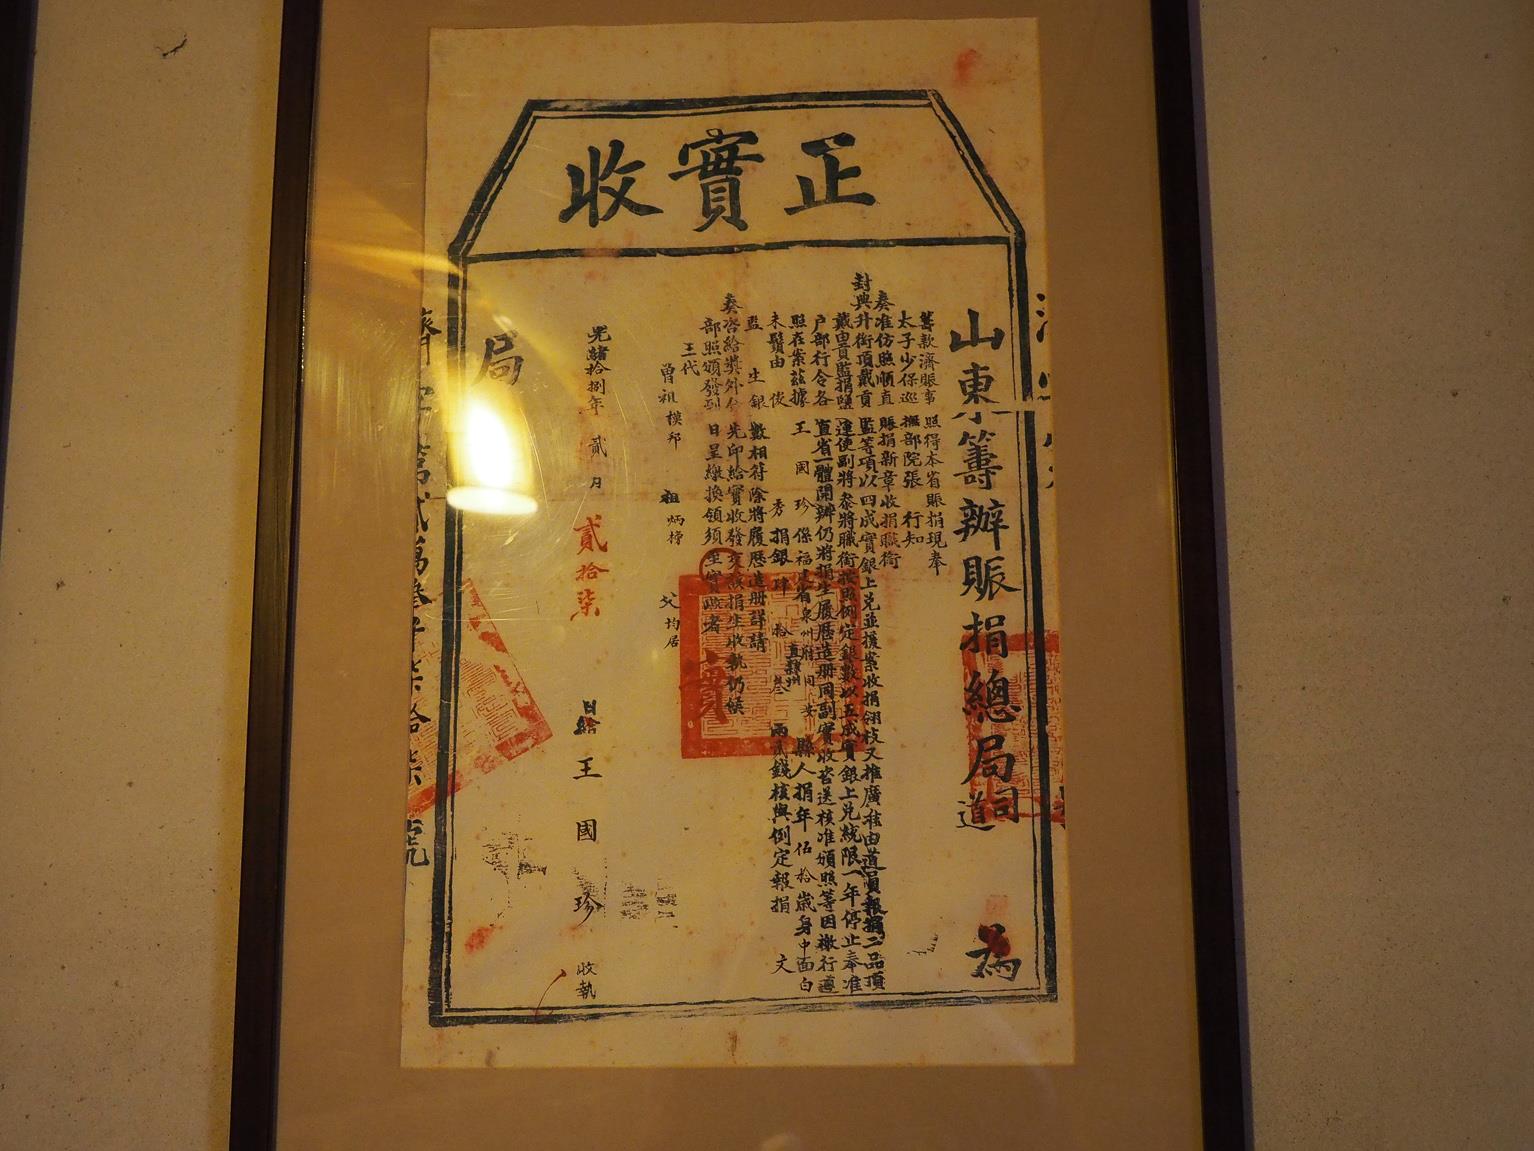 正實收
山東籌辦賑捐總局司道 為
籌款濟賑事 照得本省賑捐現奉
太子少保巡撫部院張 行知
奏准仿照順直賑捐新章收捐職銜
封典升銜頂戴貢監等項以四成實銀上兌並援案收捐翎枝又推廣准由道員報捐二品頂
戴由貢監捐鹽運使副將參將職銜按照例定銀數以五成實銀上兌統限一年停止奉准
戶部行令各直省一體開辦仍將捐生履歷造冊同副實收咨送核准頒照等因檄行遵
照在案茲據 王國珍係福建省泉州府同安縣人捐年伍拾歲身中面白
未鬚由俊秀捐銀肆拾叁兩貳錢核與例定報捐 文
監生銀數相符除將履歷造冊詳請
奏咨給獎外合先印給實收發交該捐生收執仍候
部照頒發到日呈繳換領須至實收者
三代
曾祖樸邦 祖炳 父均居
光緒拾捌年貳月貳拾柒日給王國珍 收執
局
濟字第貳萬叁千柒拾柒號